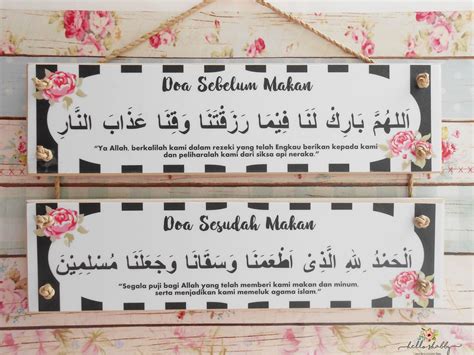 Doa Sebelum Makan
اَللهُمَّ بَارِكْ لَنَا فِيْمَا رَزَقْتَنَا وَقِنَا عَذَابَ النَّارِ
"Ya Allah, berkalilah kami dalam rezeki yang telah Engkau berikan kepada kami
dan peliharalah kami dari siksa api neraka."
Doa Sesudah Makan
اَلْحَمْدُ لِلّٰهِ الَّذِى اَطْعَمَنَا وَسَقَانَا وَجَعَلَنَا مُسْلِمِيْنَ
"Segala puji bagi Allah yang telah memberi kami makan dan minum,
serta menjadikan kami memeluk agama islam."
hello shabby